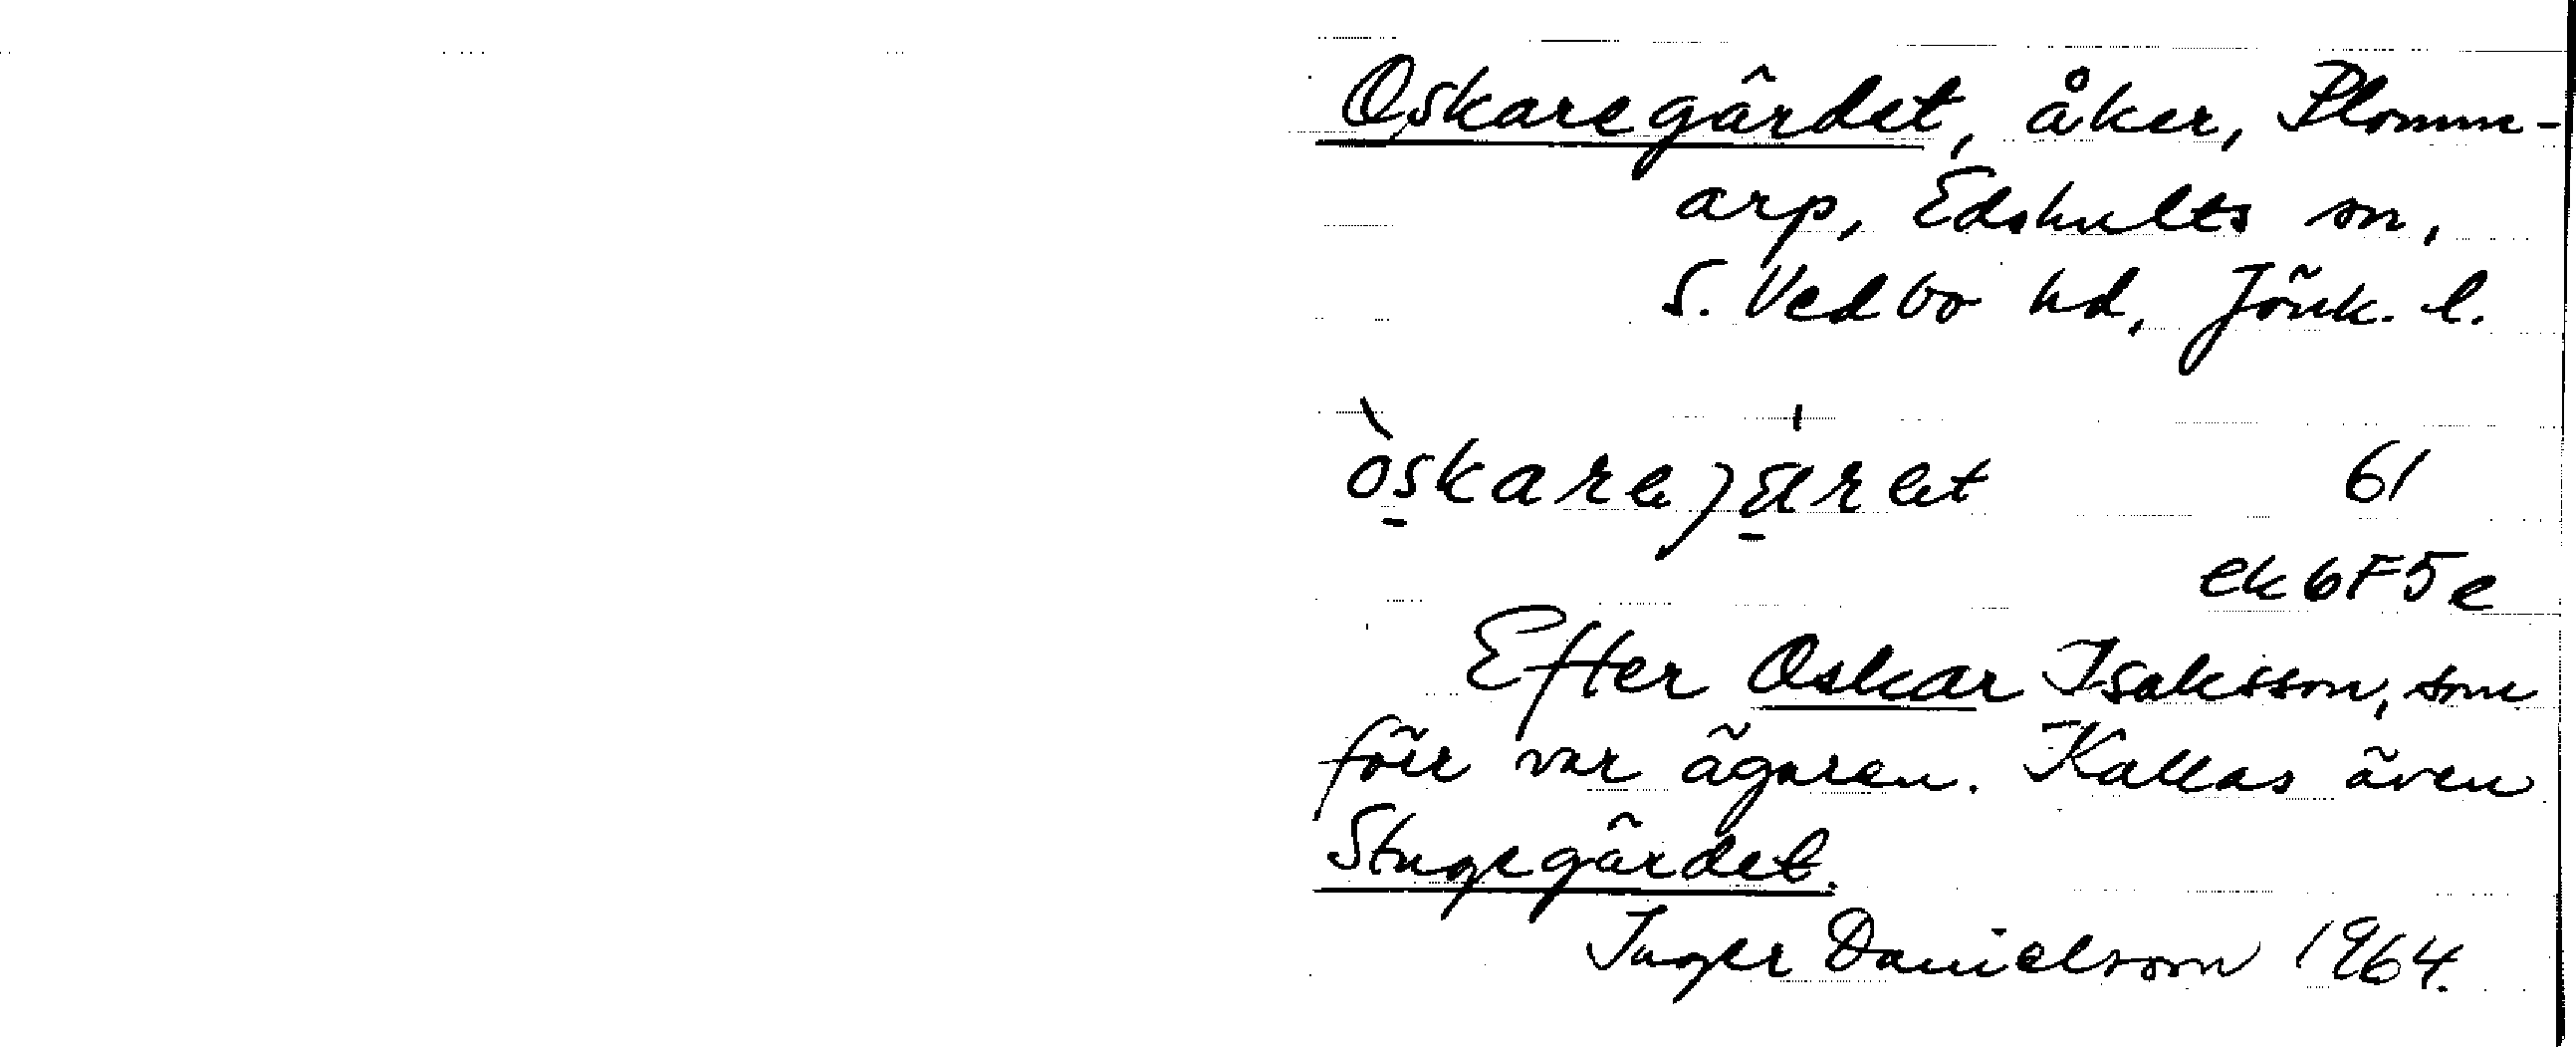 Oskaregärdet, åker, Plomm-
arp, Edshults sn,
S. Vedbo hd, Jönk. l.
òskarejä̱ret 61
ek 6F5e
Efter Oskar Isaksson, som
förr var ägaren. Kallas även
Stugegärdet.
Inger Danielsson 1964.